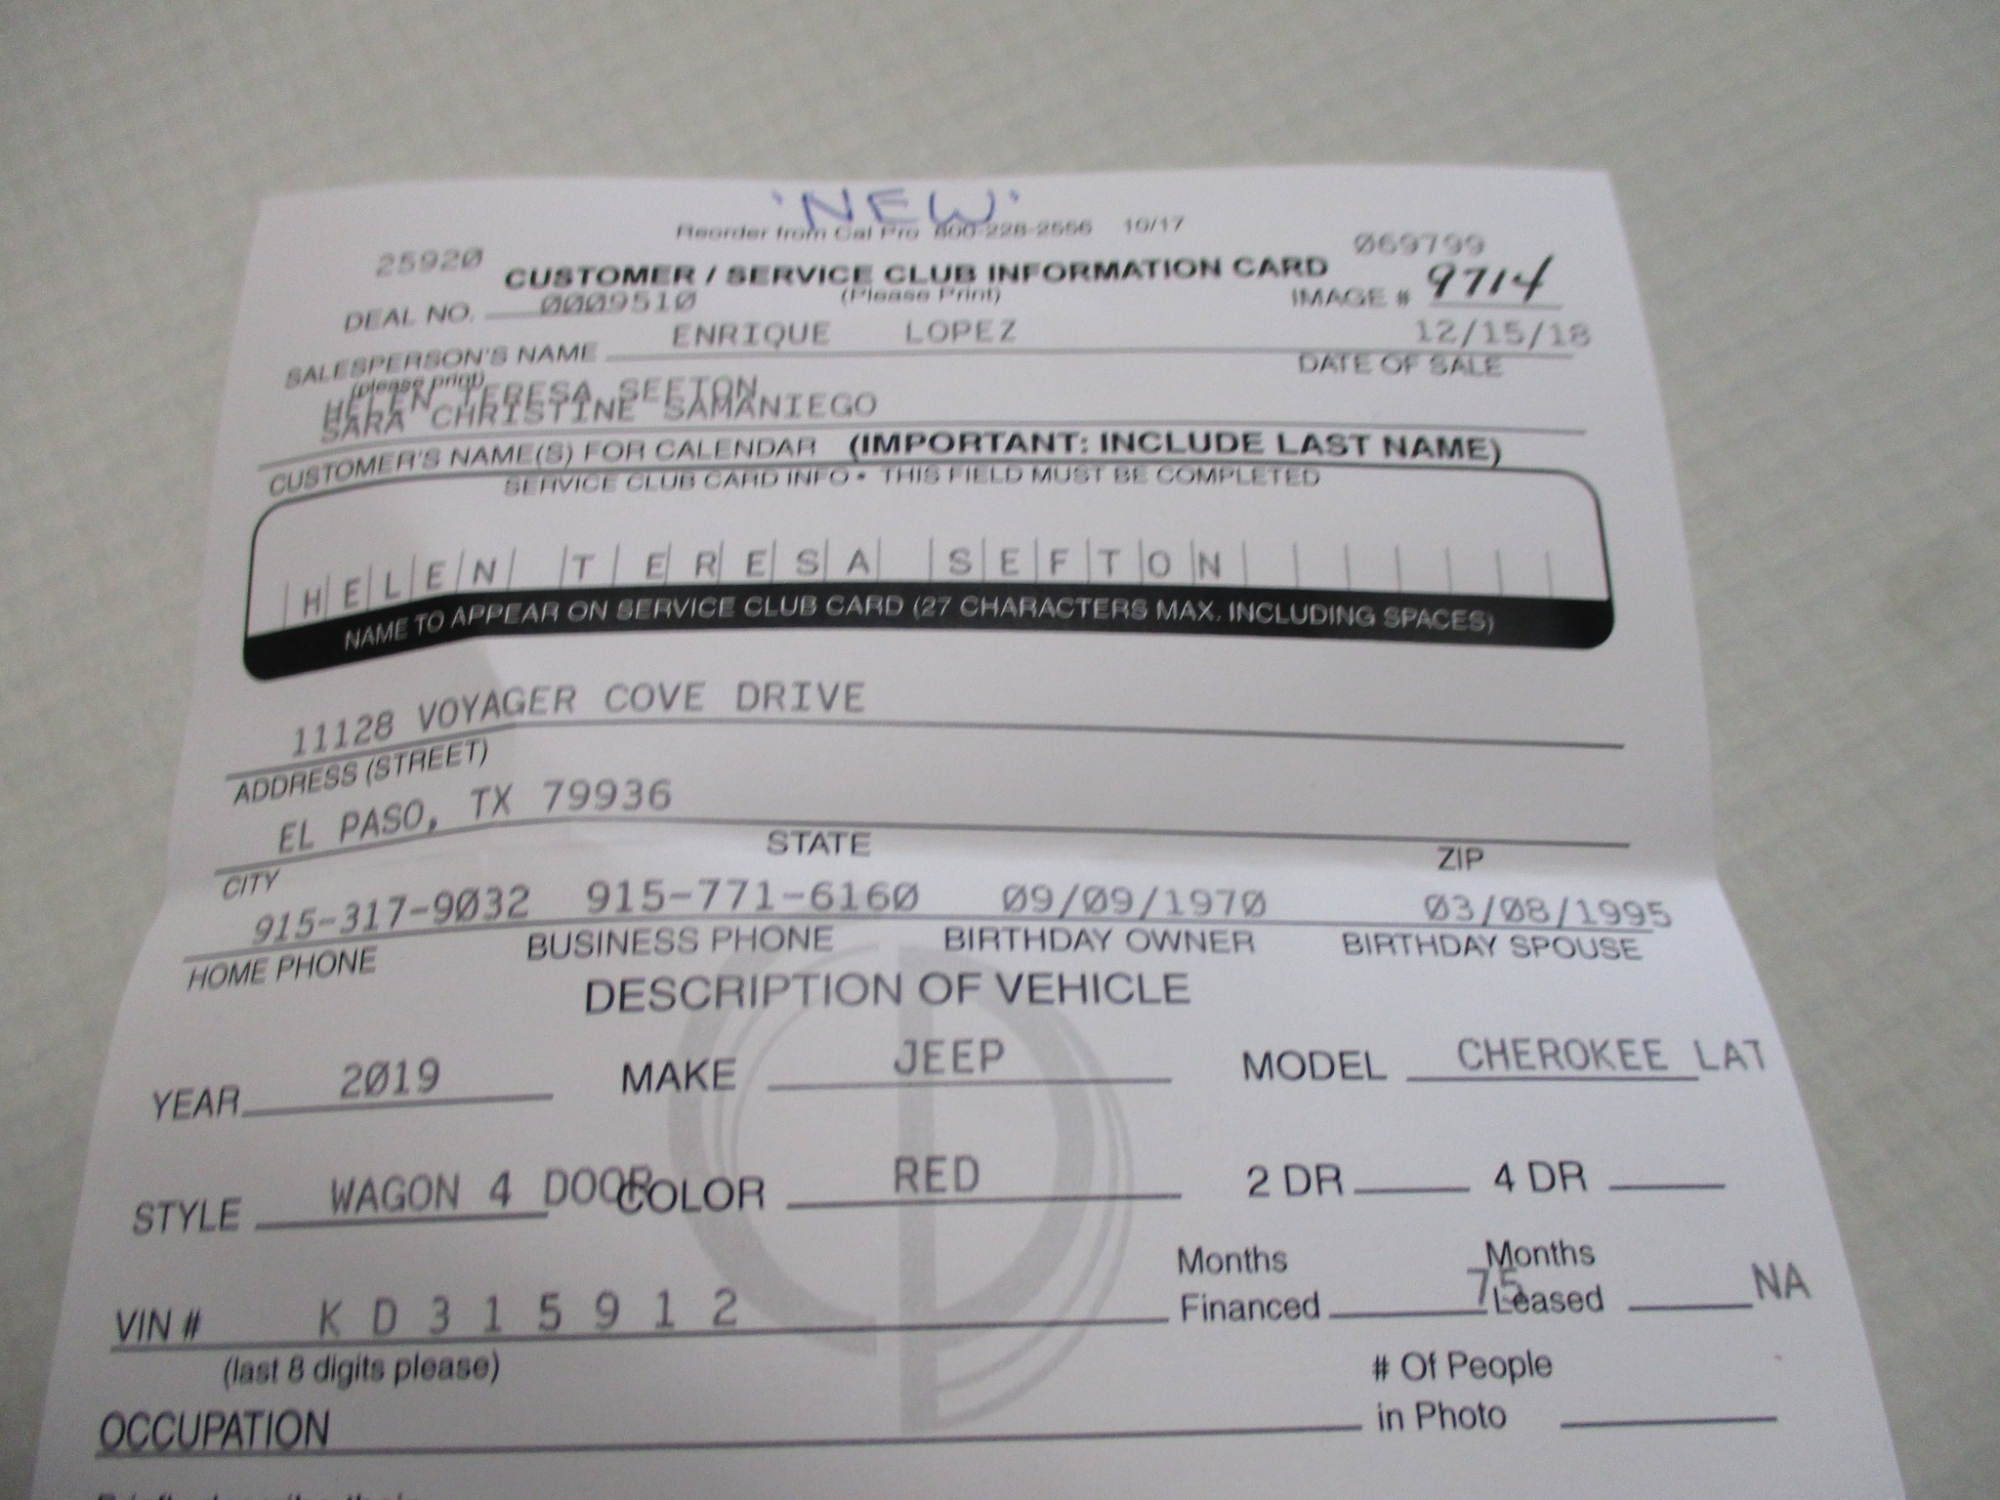 'NEW'
Reorder from Cal Pro 800-228-2556 10/17
25920 069799
CUSTOMER / SERVICE CLUB INFORMATION CARD
(Please Print)
DEAL NO. 0009510 IMAGE # 9714
SALESPERSON'S NAME ENRIQUE LOPEZ 12/15/18
(please print) DATE OF SALE
HELEN TERESA SEFTON
SARA CHRISTINE SAMANIEGO
CUSTOMER'S NAME(S) FOR CALENDAR (IMPORTANT: INCLUDE LAST NAME)
SERVICE CLUB CARD INFO • THIS FIELD MUST BE COMPLETED
HELEN TERESA SEFTON
NAME TO APPEAR ON SERVICE CLUB CARD (27 CHARACTERS MAX. INCLUDING SPACES)
11128 VOYAGER COVE DRIVE
ADDRESS (STREET)
EL PASO, TX 79936
CITY STATE ZIP
915-317-9032 915-771-6160 09/09/1970 03/08/1995
HOME PHONE BUSINESS PHONE BIRTHDAY OWNER BIRTHDAY SPOUSE
DESCRIPTION OF VEHICLE
YEAR 2019 MAKE JEEP MODEL CHEROKEE LAT
STYLE WAGON 4 DOOR COLOR RED 2 DR 4 DR
VIN # K D 3 1 5 9 1 2 Months Financed 75 Months Leased NA
(last 8 digits please)
OCCUPATION # Of People in Photo